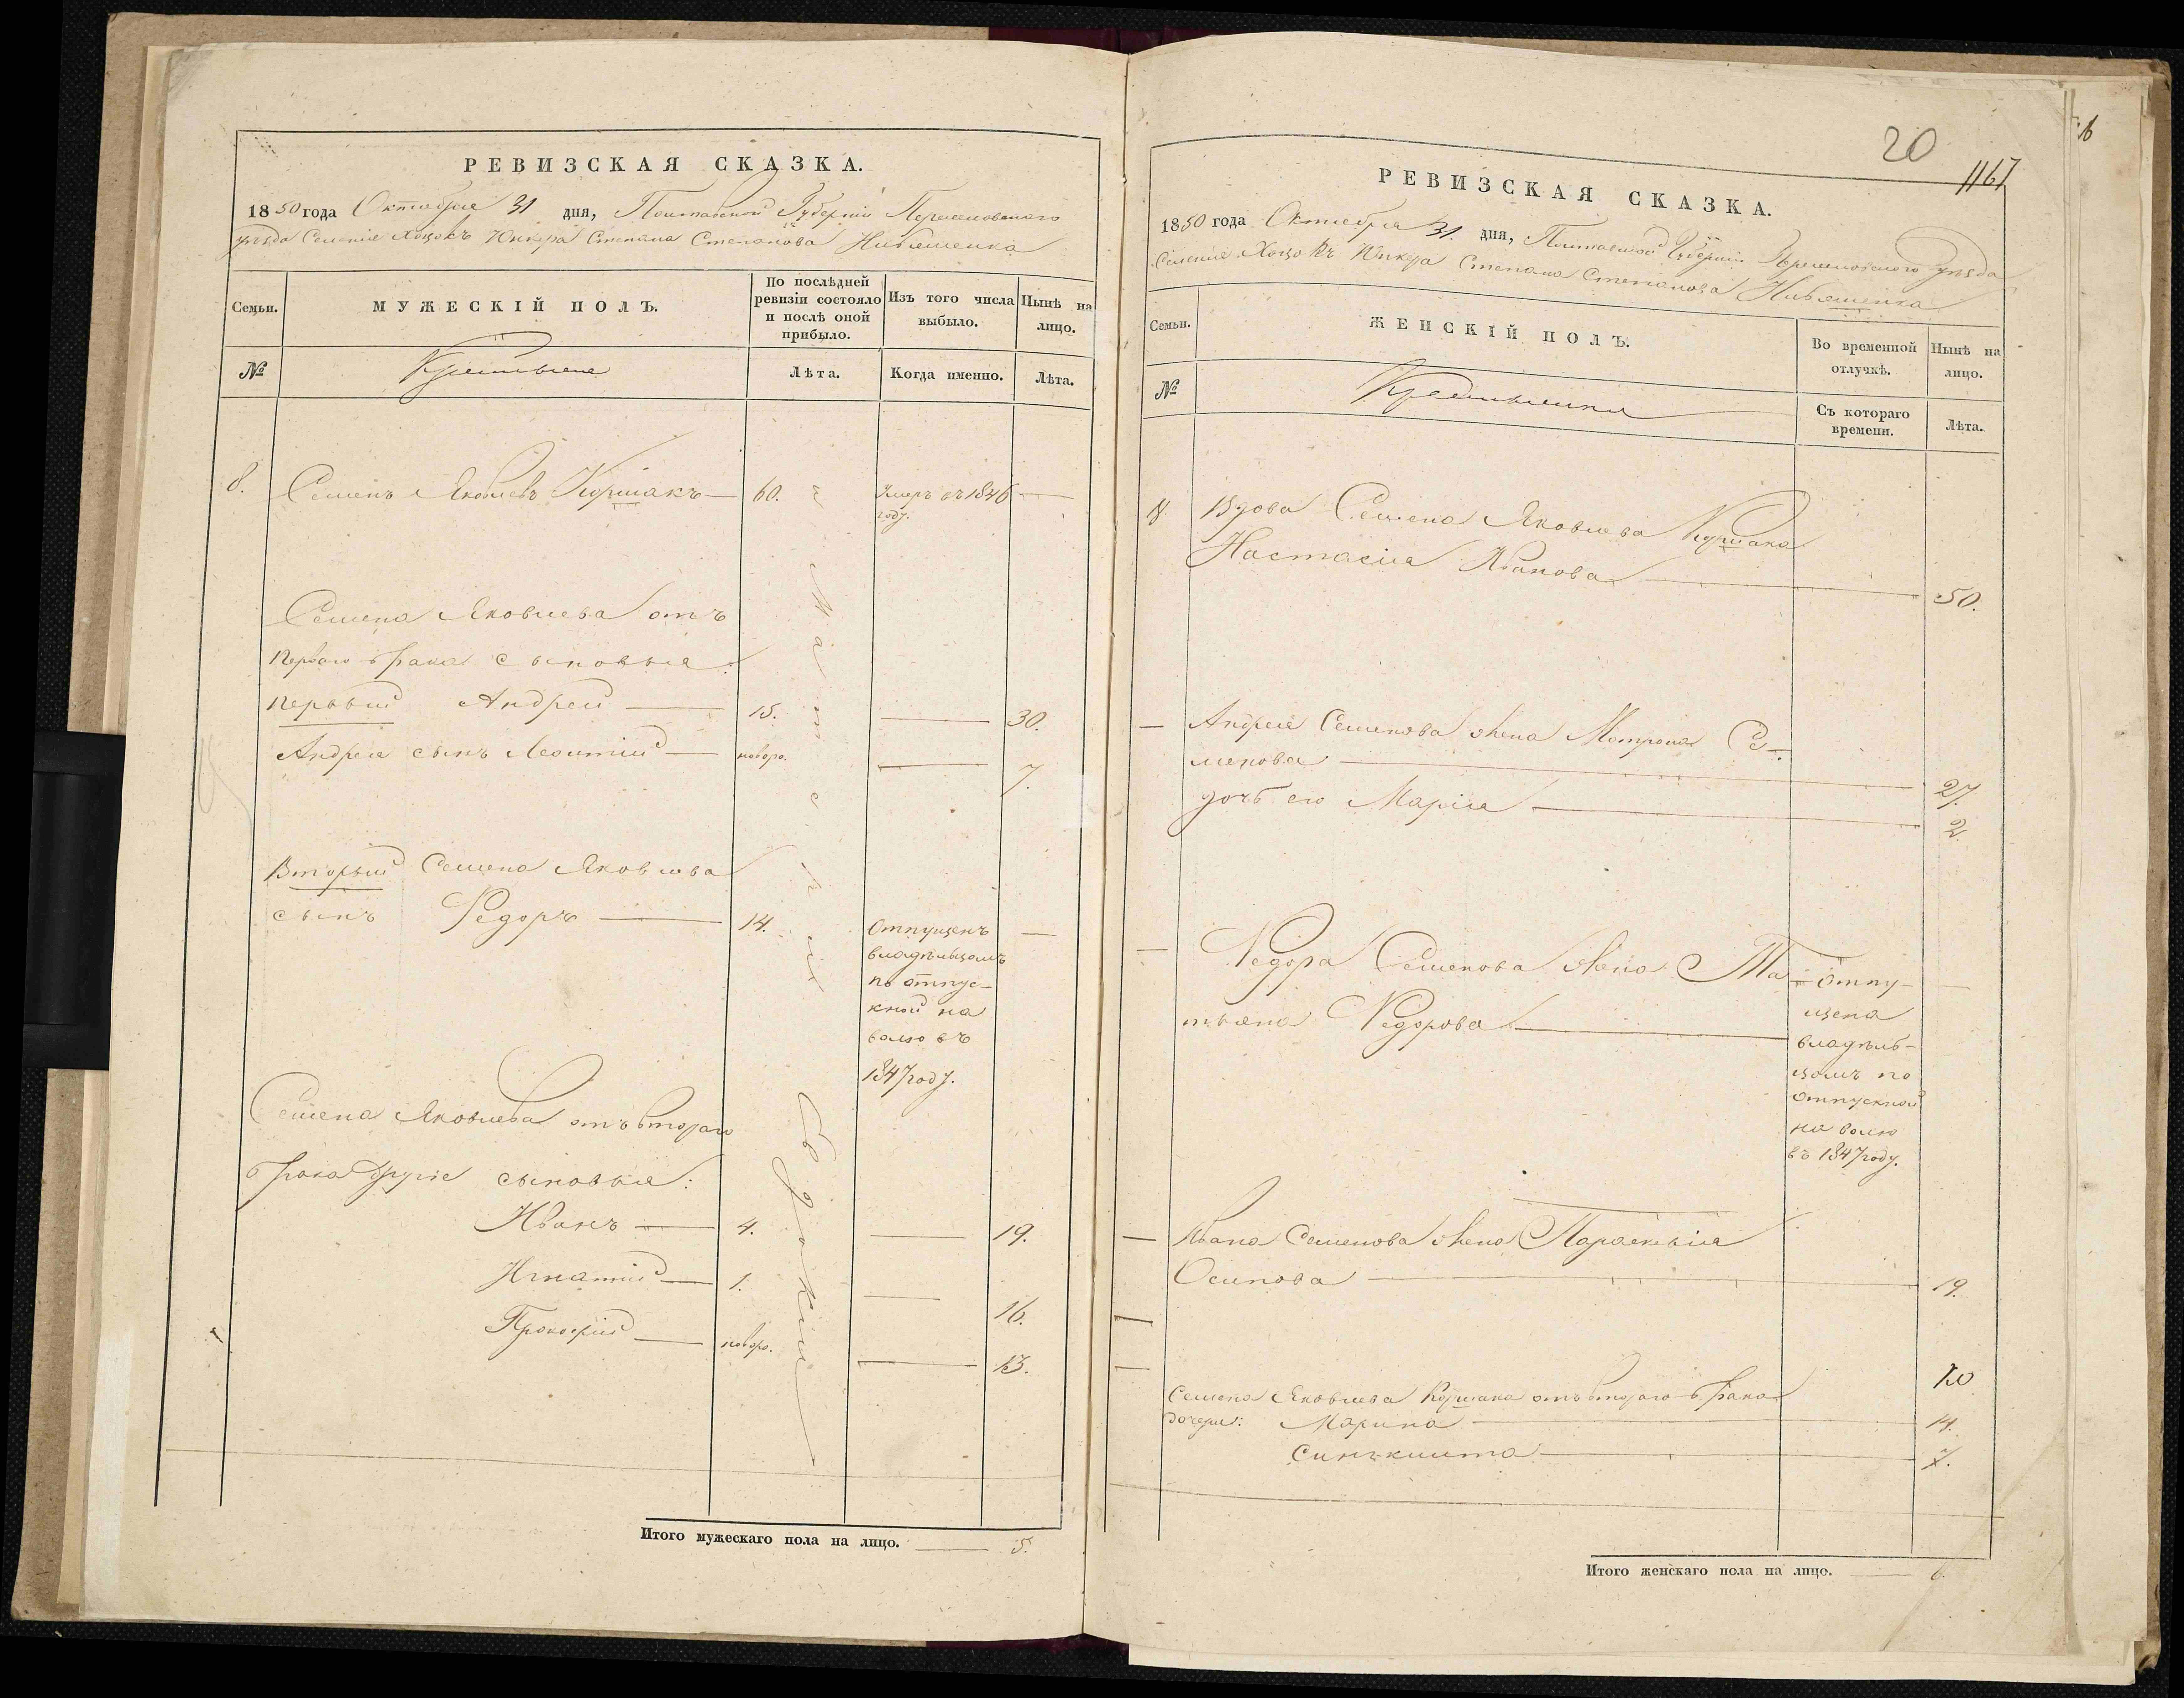 РЕВИЗСКАЯ СКАЗКА.
1850 года Октября 31 дня, Полтавской Губерніи Переяславскаго
уѣзда Селенія Хоцокъ Юнкера Степана Степанова
Семьи.
МУЖЕСКІЙ ПОЛЪ.
По послѣдней ревизіи состояло и послѣ оной прибыло.
Изъ того числа выбыло.
Нынѣ на лицо.
№
Крестьяне
Лѣта.
Когда именно.
Лѣта.
8. Семенъ Яковлевъ Коршакъ — 60. Умеръ въ 1846 —
году.
Семена Яковлева отъ
перваго брака сыновья:
первый Андрей — 15. — 30.
Андрея сынъ Леонтий — новоро. — 7.
Вторый Семена Яковлева
сынъ Федоръ — 14. Отпущенъ —
владѣльцомъ
по отпус-
кной на
волю въ
1847 году.
Семена Яковлева отъ втораго
брака другіе сыновья:
Иванъ — 4. — 19.
Игнатий — 1. — 16.
Прокофий — новоро. — 13.
Итого мужескаго пола на лицо. — 5.
20
1161
РЕВИЗСКАЯ СКАЗКА.
1850 года Октября 31. дня, Полтавской Губерніи Переяславскаго уѣзда
Селенія Хоцокъ Юнкера Степана Степанова
Семьи.
ЖЕНСКІЙ ПОЛЪ.
Во временной отлучкѣ.
Нынѣ на лицо.
№
Крестьянки
Съ котораго времени.
Лѣта.
8 Вдова Семена Яковлева Коршака
Настасія Иванова — 50.
— Андрея Семенова жена Матрона Се-
менова — 27.
дочь его Марія — 2.
— Федора Семенова жена Та- Отпу- —
тьяна Федорова — щена
владѣль-
цомъ по
отпускной
на волю
въ 1847 году.
— Ивана Семенова жена Параскевія
Осипова — 19.
—
—
Семена Яковлева Коршака отъ втораго брака
дочери: Марина — 14.
Синъклита — 7.
Итого женскаго пола на лицо. — 6.